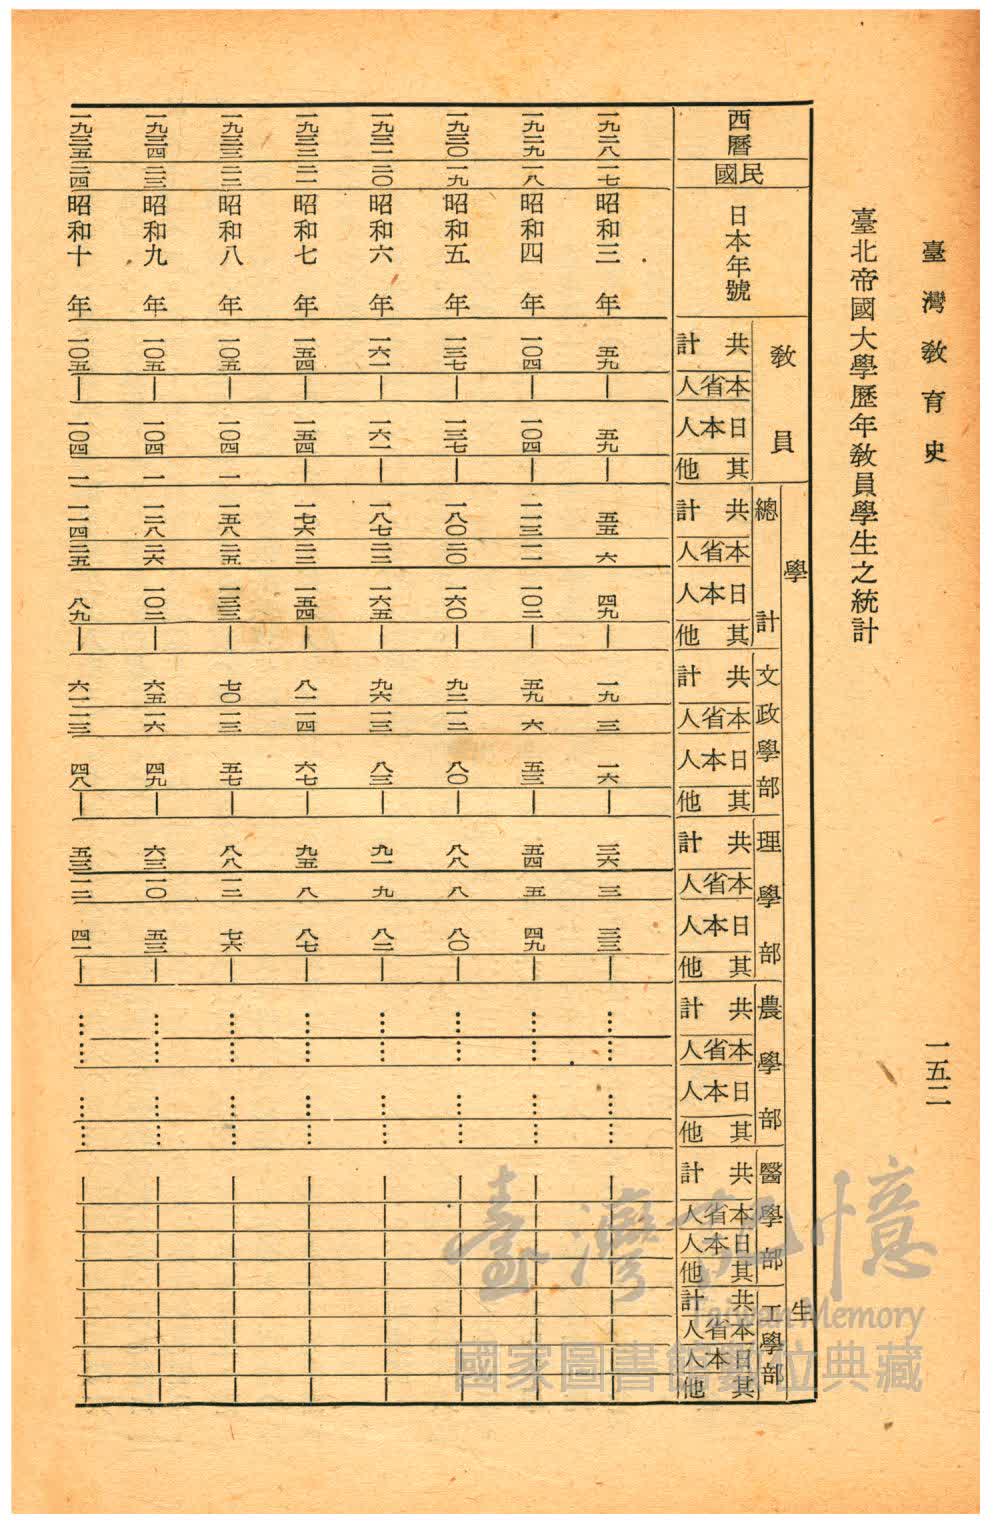 臺灣教育史 一五二
臺北帝國大學歷年教員學生之統計
西曆 民國 日本年號
教員 共計 本省人 日本人 其他
學生
總計 共計 本省人 日本人 其他
文政學部 共計 本省人 日本人 其他
理學部 共計 本省人 日本人 其他
農學部 共計 本省人 日本人 其他
醫學部 共計 本省人 日本人 其他
工學部 共計 本省人 日本人 其他
一九二八 一七 昭和三年 五九 — 五九 — 五五 六 四九 — 一九 三 一六 — 三六 三 三三 — … … … … — — — — — — — —
一九二九 一八 昭和四年 一〇四 — 一〇四 — 一一三 一一 一〇二 — 五九 六 五三 — 五四 五 四九 — … … … … — — — — — — — —
一九三〇 一九 昭和五年 一三七 — 一三七 — 一八〇 二〇 一六〇 — 九二 一二 八〇 — 八八 八 八〇 — … … … … — — — — — — — —
一九三一 二〇 昭和六年 一六一 — 一六一 — 一八七 二二 一六五 — 九六 一三 八三 — 九一 九 八二 — … … … … — — — — — — — —
一九三二 二一 昭和七年 一五四 — 一五四 — 一七六 二二 一五四 — 八一 一四 六七 — 九五 八 八七 — … … … … — — — — — — — —
一九三三 二二 昭和八年 一〇五 — 一〇四 一 一五八 二五 一三三 — 七〇 一三 五七 — 八八 一二 七六 — … … … … — — — — — — — —
一九三四 二三 昭和九年 一〇五 — 一〇四 一 一二八 二六 一〇二 — 六五 一六 四九 — 六三 一〇 五三 — … … … … — — — — — — — —
一九三五 二四 昭和十年 一〇五 — 一〇四 一 一一四 二五 八九 — 六一 一三 四八 — 五三 一二 四一 — … … … … — — — — — — — —
臺灣記憶
Taiwan Memory
國家圖書館數位典藏